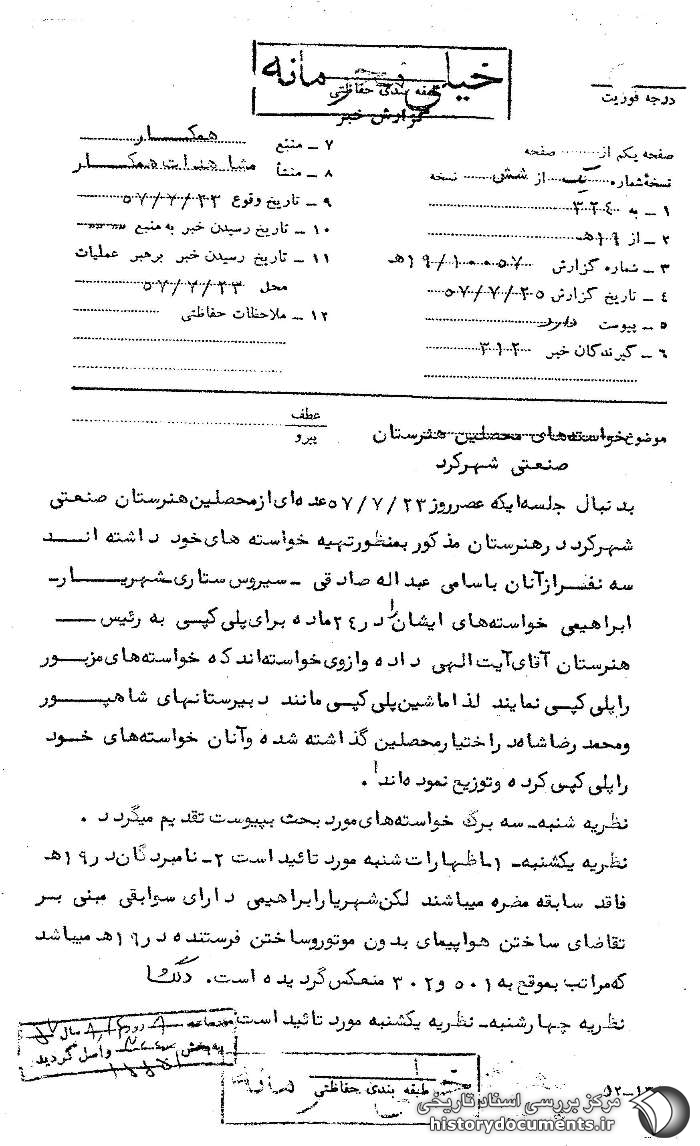 خیلی محرمانه
طبقه بندی حفاظتی
گزارش خبر
درجه فوریت
صفحه یکم از صفحه
نسخه شماره یک از شش نسخه
۱ ـ به ۳۲۴
۲ ـ از ۱۹هـ
۳ ـ شماره گزارش ۱۹/۱۰۰۵۷هـ
۴ ـ تاریخ گزارش ۵۷/۷/۲۵
۵ ـ پیوست دارد
۶ ـ گیرندگان خبر ۳۱۲
۷ ـ منبع همکار
۸ ـ منشأ مشاهدات همکار
۹ ـ تاریخ وقوع ۵۷/۷/۲۳
۱۰ ـ تاریخ رسیدن خبر به منبع
۱۱ ـ تاریخ رسیدن خبر برهبر عملیات
محل ۵۷/۷/۲۳
۱۲ ـ ملاحظات حفاظتی
موضوع خواسته‌های محصلین هنرستان
صنعتی شهرکرد
عطف
پیرو
بدنبال جلسه‌ایکه عصرروز ۵۷/۷/۲۳ عده‌ای از محصلین هنرستان صنعتی
شهرکرد در هنرستان مذکور بمنظور تهیه خواسته های خود داشته اند
سه نفر از آنان باسامی عبداله صادقی ـ سیروس ستاری ـ شهریار
ابراهیمی خواسته‌های ایشان را در ۲۴ ماده برای پلی کپی به رئیس
هنرستان آقای آیت الهی داده و از وی خواسته‌اند که خواسته‌های مزبور
را پلی کپی نمایند لذا ماشین پلی کپی مانند دبیرستانهای شاهپور
و محمد رضا شاه در اختیار محصلین گذاشته شده و آنان خواسته‌های خود
را پلی کپی کرده و توزیع نموده‌اند .
نظریه شنبه ـ سه برگ خواسته‌های مورد بحث بپیوست تقدیم میگردد .
نظریه یکشنبه ـ ۱ـ اظهارات شنبه مورد تائید است ۲ـ نامبردگان در ۱۹هـ
فاقد سابقه مضره میباشند لکن شهریار ابراهیمی دارای سوابقی مبنی بر
تقاضای ساختن هواپیمای بدون موتور و ساختن فرستنده در ۱۹هـ میباشد
که مراتب بموقع به ۵۰۱ و ۳۰۲ منعکس گردیده است.
نظریه چهارشنبه ـ نظریه یکشنبه مورد تائید است
واصل گردید
طبقه بندی حفاظتی
مرکز بررسی اسناد تاریخی
historydocuments.ir